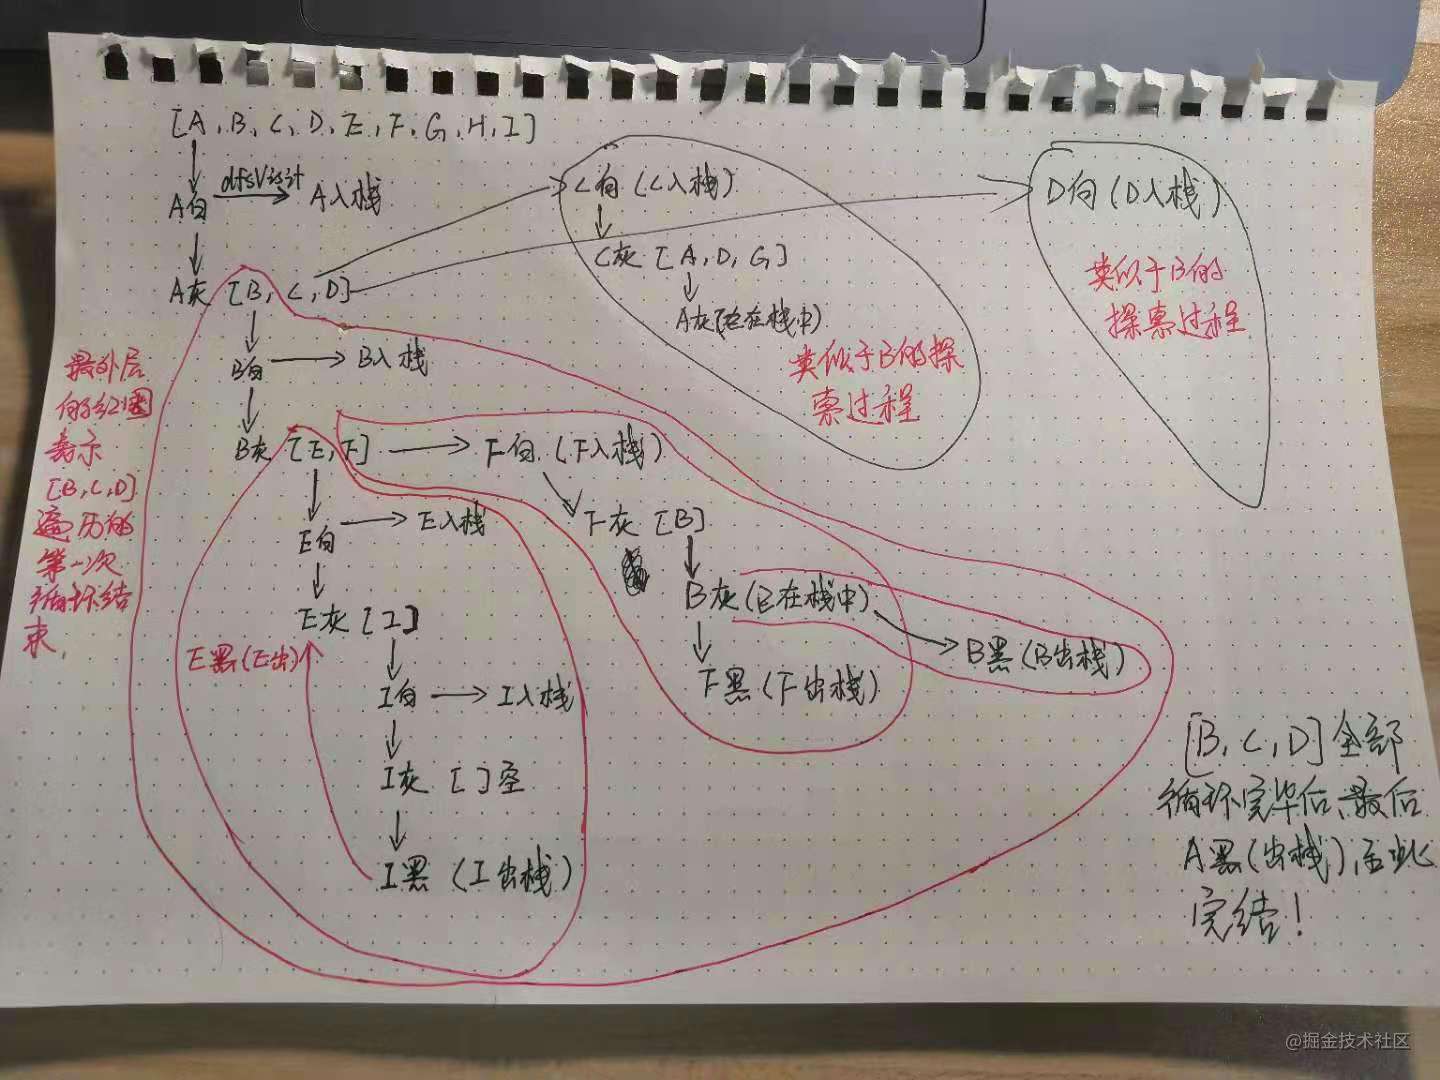 [A, B, C, D, E, F, G, H, I]
A白
A入栈
A灰 [B, C, D]
B白
B入栈
B灰 [E, F]
E白
E入栈
E灰 [I]
I白
I入栈
I灰 [ ] 空
I黑 (I出栈)
E黑(E出)
F白 (F入栈)
F灰 [B]
B灰(已在栈中)
F黑 (F出栈)
B黑 (B出栈)
C白 (C入栈)
C灰 [A, D, G]
A灰(已在栈中)
类似于B的探
索过程
D白 (D入栈)
类似于B的
探索过程
最外层
的红圈
表示
[B, C, D]
遍历的
第一次
循环结
束,
[B, C, D]全部
循环完毕后,最后
A黑(出栈),至此
完结!
@掘金技术社区